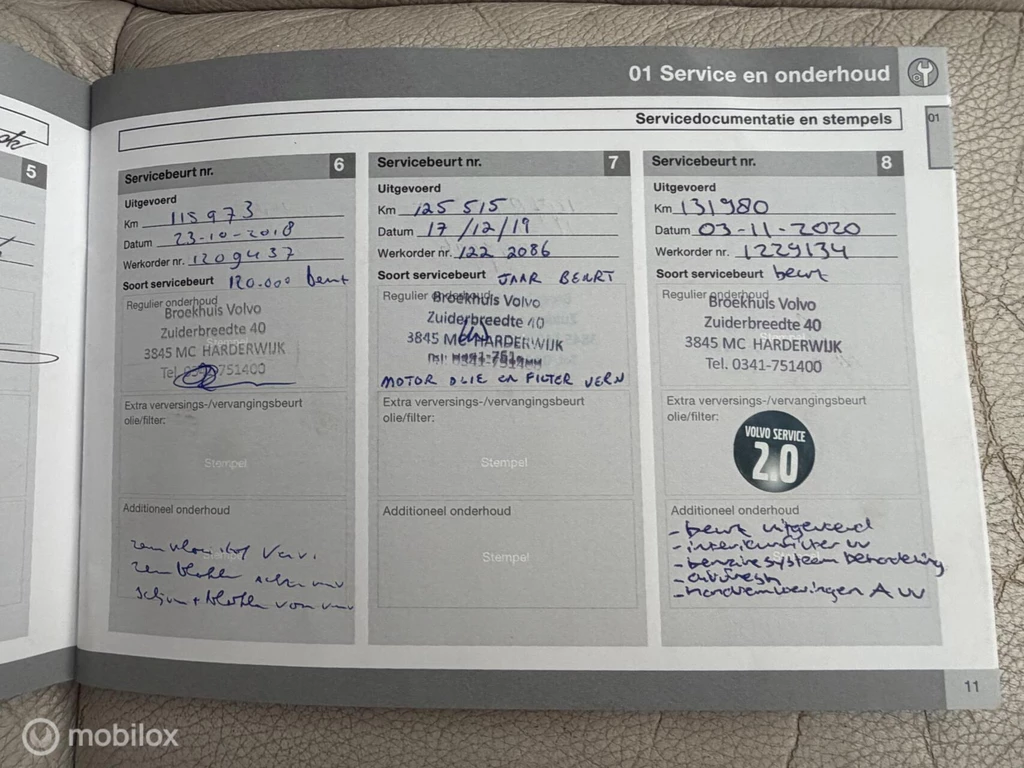 01 Service en onderhoud
Servicedocumentatie en stempels
01
ok
5
Servicebeurt nr. 6
Uitgevoerd
Km 115973
Datum 23-10-2018
Werkorder nr. 1209437
Soort servicebeurt 120.000 beurt
Regulier onderhoud
Broekhuis Volvo
Zuiderbreedte 40
3845 MC HARDERWIJK
Tel. 0341-751400
Extra verversings-/vervangingsbeurt
olie/filter:
Stempel
Additioneel onderhoud
remvloeistof Verv.
remblokken achter
schijven + blokken voor
Servicebeurt nr. 7
Uitgevoerd
Km 125 515
Datum 17/12/19
Werkorder nr. 122 2086
Soort servicebeurt JAAR BEURT
Regulier onderhoud
Broekhuis Volvo
Zuiderbreedte 40
3845 MC HARDERWIJK
MOTOR OLIE en FILTER VERV
Extra verversings-/vervangingsbeurt
olie/filter:
Stempel
Additioneel onderhoud
Stempel
Servicebeurt nr. 8
Uitgevoerd
Km 131980
Datum 03-11-2020
Werkorder nr. 1229134
Soort servicebeurt beurt
Regulier onderhoud
Broekhuis Volvo
Zuiderbreedte 40
3845 MC HARDERWIJK
Tel. 0341-751400
Extra verversings-/vervangingsbeurt
olie/filter:
VOLVO SERVICE
2.0
Additioneel onderhoud
- beurt uitgevoerd
- interieurfilter vv
- benzinesysteem behandeling
- airfresh
- handremvoeringen A vv
11
mobilox